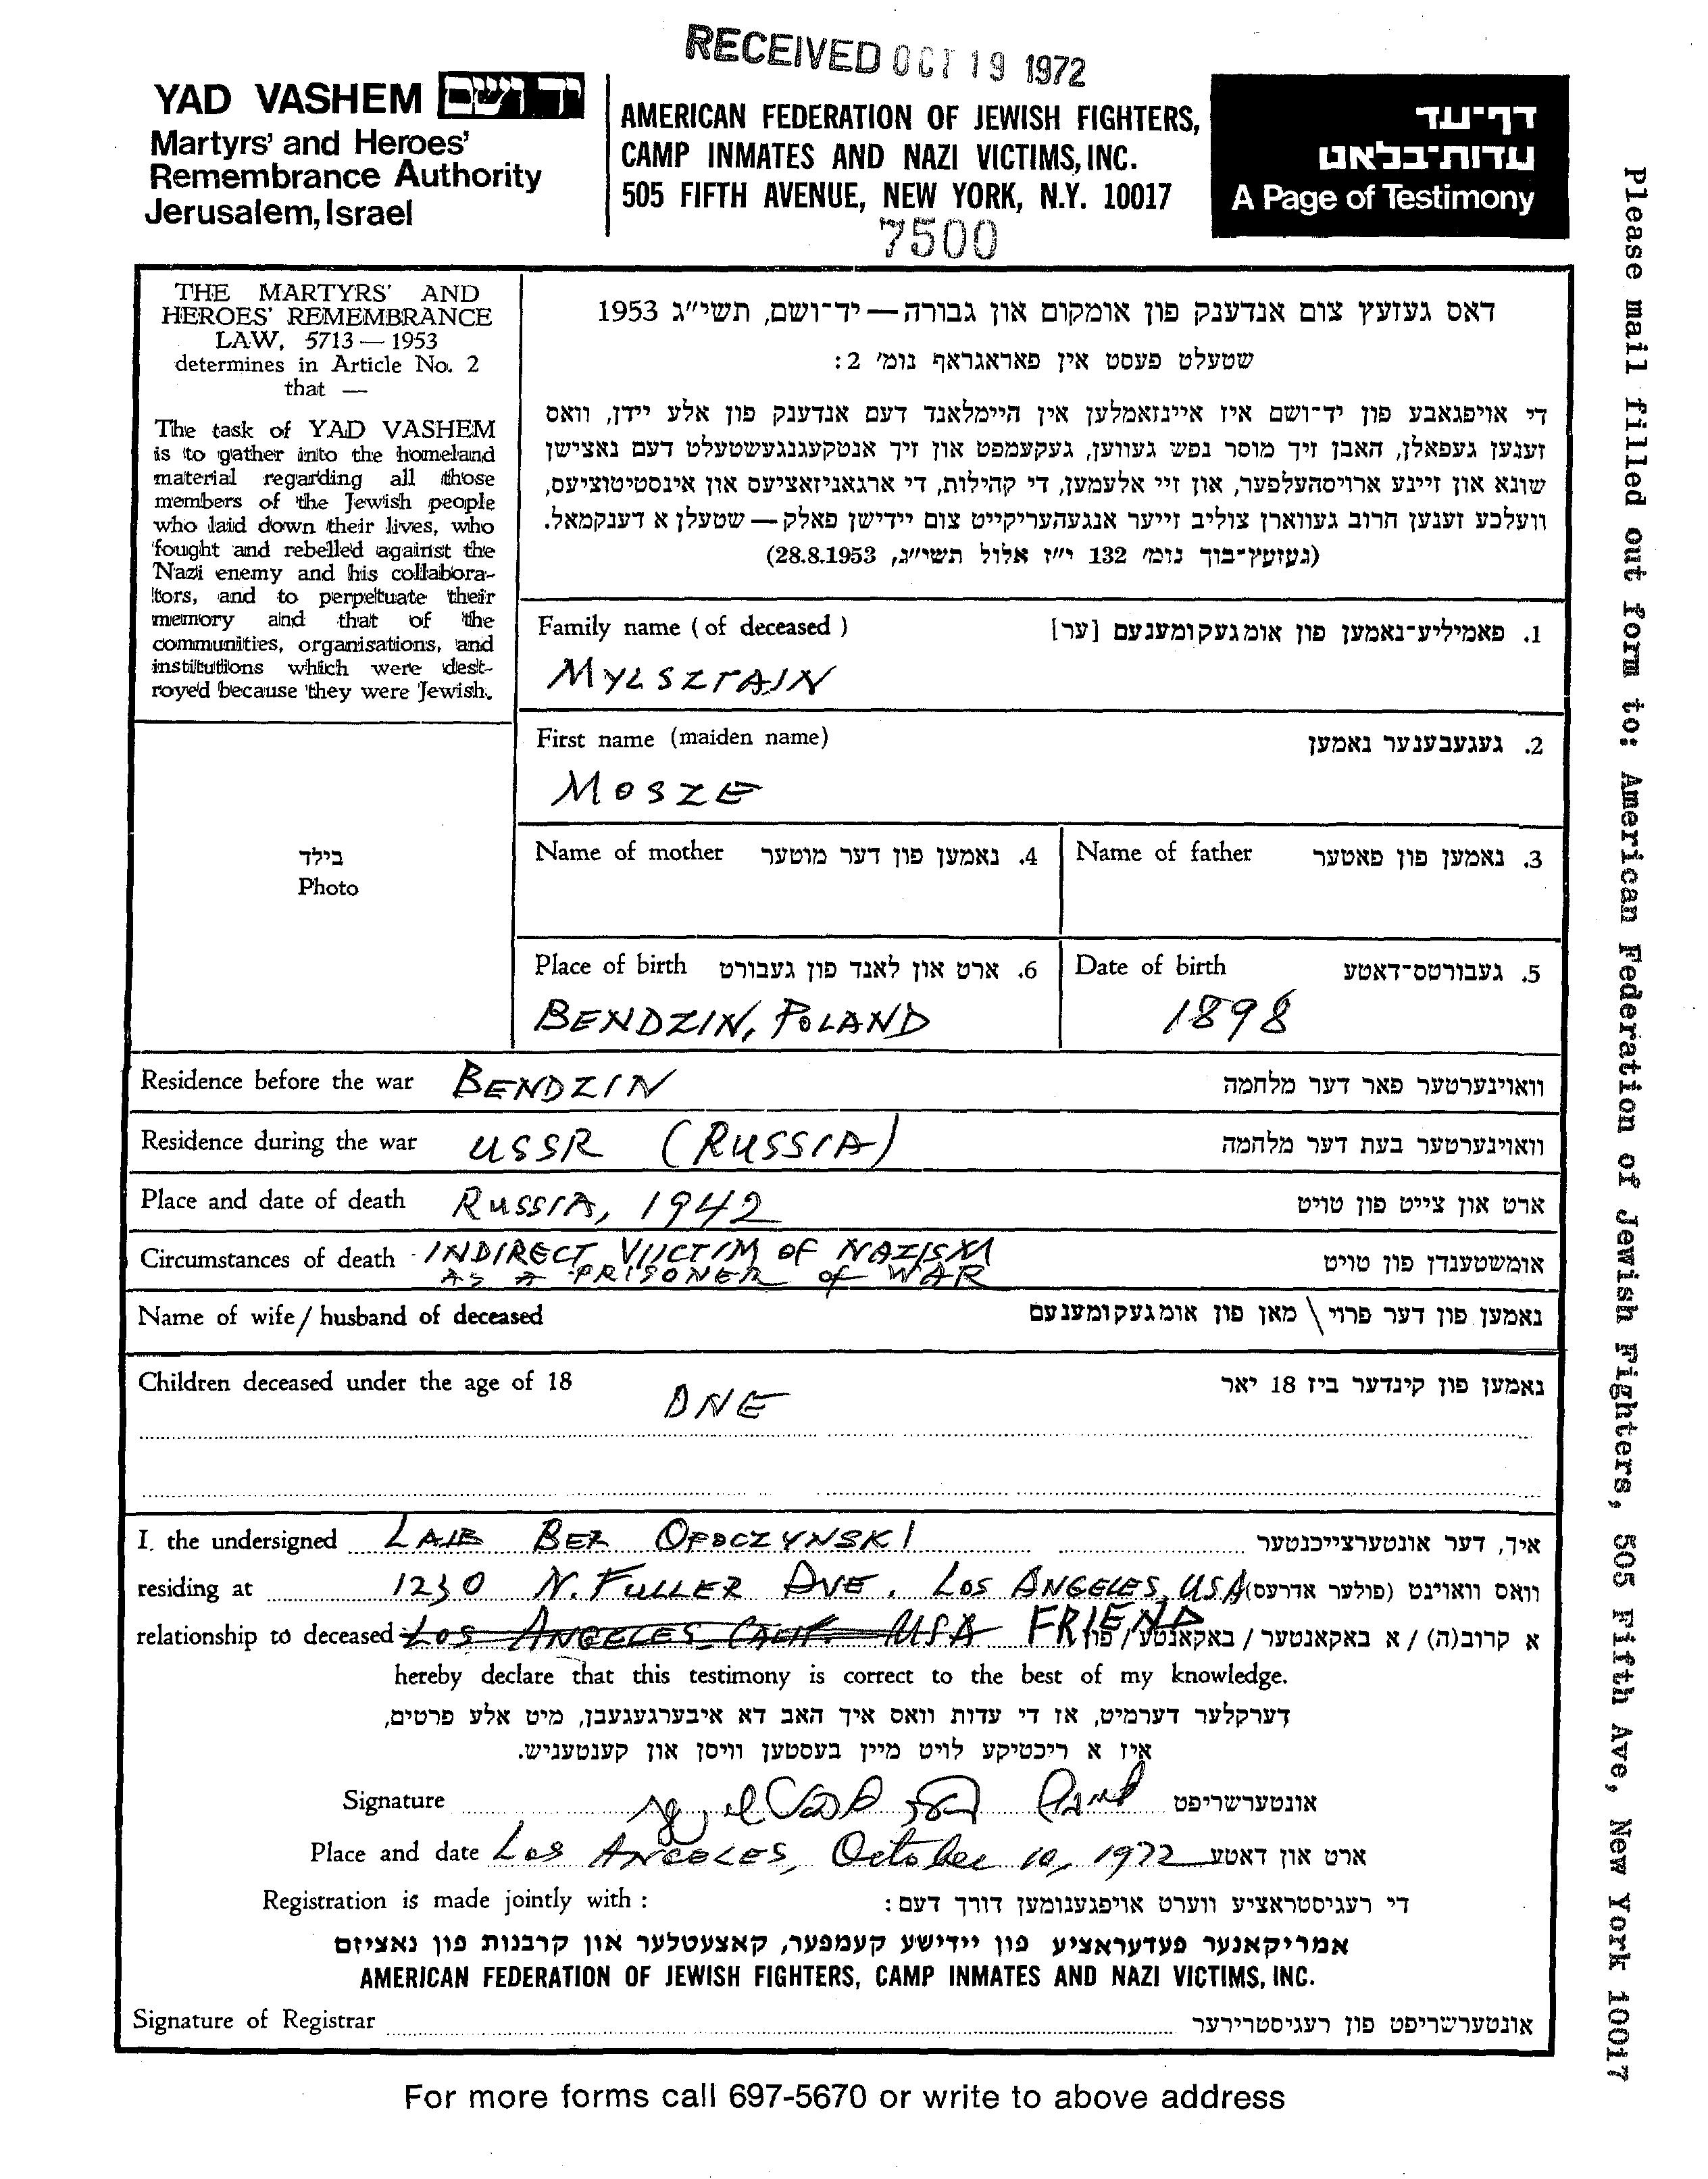 RECEIVED OCT 19 1972
YAD VASHEM יד ושם
Martyrs' and Heroes'
Remembrance Authority
Jerusalem, Israel
AMERICAN FEDERATION OF JEWISH FIGHTERS,
CAMP INMATES AND NAZI VICTIMS, INC.
505 FIFTH AVENUE, NEW YORK, N.Y. 10017
7500
דף־עד
עדות־בלאט
A Page of Testimony
THE MARTYRS' AND
HEROES' REMEMBRANCE
LAW, 5713 — 1953
determines in Article No. 2
that —
The task of YAD VASHEM
is to gather into the homeland
material regarding all those
members of the Jewish people
who laid down their lives, who
fought and rebelled against the
Nazi enemy and his collabora-
tors, and to perpetuate their
memory and that of the
communities, organisations, and
institutions which were dest-
royed because they were Jewish.
דאס געזעץ צום אנדענק פון אומקום און גבורה — יד־ושם, תשי״ג 1953
שטעלט פעסט אין פאראגראף נומ׳ 2:
די אויפגאבע פון יד־ושם איז איינזאמלען אין היימלאנד דעם אנדענק פון אלע יידן, וואס
זענען געפאלן, האבן זיך מוסר נפש געווען, געקעמפט און זיך אנטקעגנגעשטעלט דעם נאצישן
שונא און זיינע ארויסהעלפער, און זיי אלעמען, די קהילות, די ארגאניזאציעס און אינסטיטוציעס,
וועלכע זענען חרוב געווארן צוליב זייער אנגעהעריקייט צום יידישן פאלק — שטעלן א דענקמאל.
(געזעץ־בוך נומ׳ 132 י״ז אלול תשי״ג, 28.8.1953)
Family name (of deceased) 1. פאמיליע־נאמען פון אומגעקומענעם [ער]
MYLSZTAJN
First name (maiden name) 2. געגעבענער נאמען
MOSZE
בילד
Photo
Name of mother 4. נאמען פון דער מוטער
Name of father 3. נאמען פון פאטער
Place of birth 6. ארט און לאנד פון געבורט
BENDZIN, POLAND
Date of birth 5. געבורטס־דאטע
1898
Residence before the war BENDZIN וואוינערטער פאר דער מלחמה
Residence during the war USSR (RUSSIA) וואוינערטער בעת דער מלחמה
Place and date of death RUSSIA, 1942 ארט און צייט פון טויט
Circumstances of death INDIRECT VIICTIM OF NAZISM אומשטענדן פון טויט
AS A PRISONER of WAR
Name of wife / husband of deceased נאמען פון דער פרוי \ מאן פון אומגעקומענעם
Children deceased under the age of 18 ONE נאמען פון קינדער ביז 18 יאר
I, the undersigned LAIB BER OFDCZYNSKI איך, דער אונטערצייכנטער
residing at 1230 N. FULLER AVE. LOS ANGELES, USA וואס וואוינט (פולער אדרעס)
relationship to deceased LOS ANGELES CALIF. USA FRIEND א קרוב(ה) / א באקאנטער / באקאנטע / פון
hereby declare that this testimony is correct to the best of my knowledge.
דערקלער דערמיט, אז די עדות וואס איך האב דא איבערגעגעבן, מיט אלע פרטים,
איז א ריכטיקע לויט מיין בעסטען וויסן און קענטעניש.
Signature אונטערשריפט
Place and date Los ANGELES, October 10, 1972 ארט און דאטע
Registration is made jointly with : די רעגיסטראציע ווערט אויפגענומען דורך דעם :
אמריקאנער פעדעראציע פון יידישע קעמפער, קאצעטלער און קרבנות פון נאציזם
AMERICAN FEDERATION OF JEWISH FIGHTERS, CAMP INMATES AND NAZI VICTIMS, INC.
Signature of Registrar אונטערשריפט פון רעגיסטרירער
For more forms call 697-5670 or write to above address
Please mail filled out form to: American Federation of Jewish Fighters, 505 Fifth Ave, New York 10017